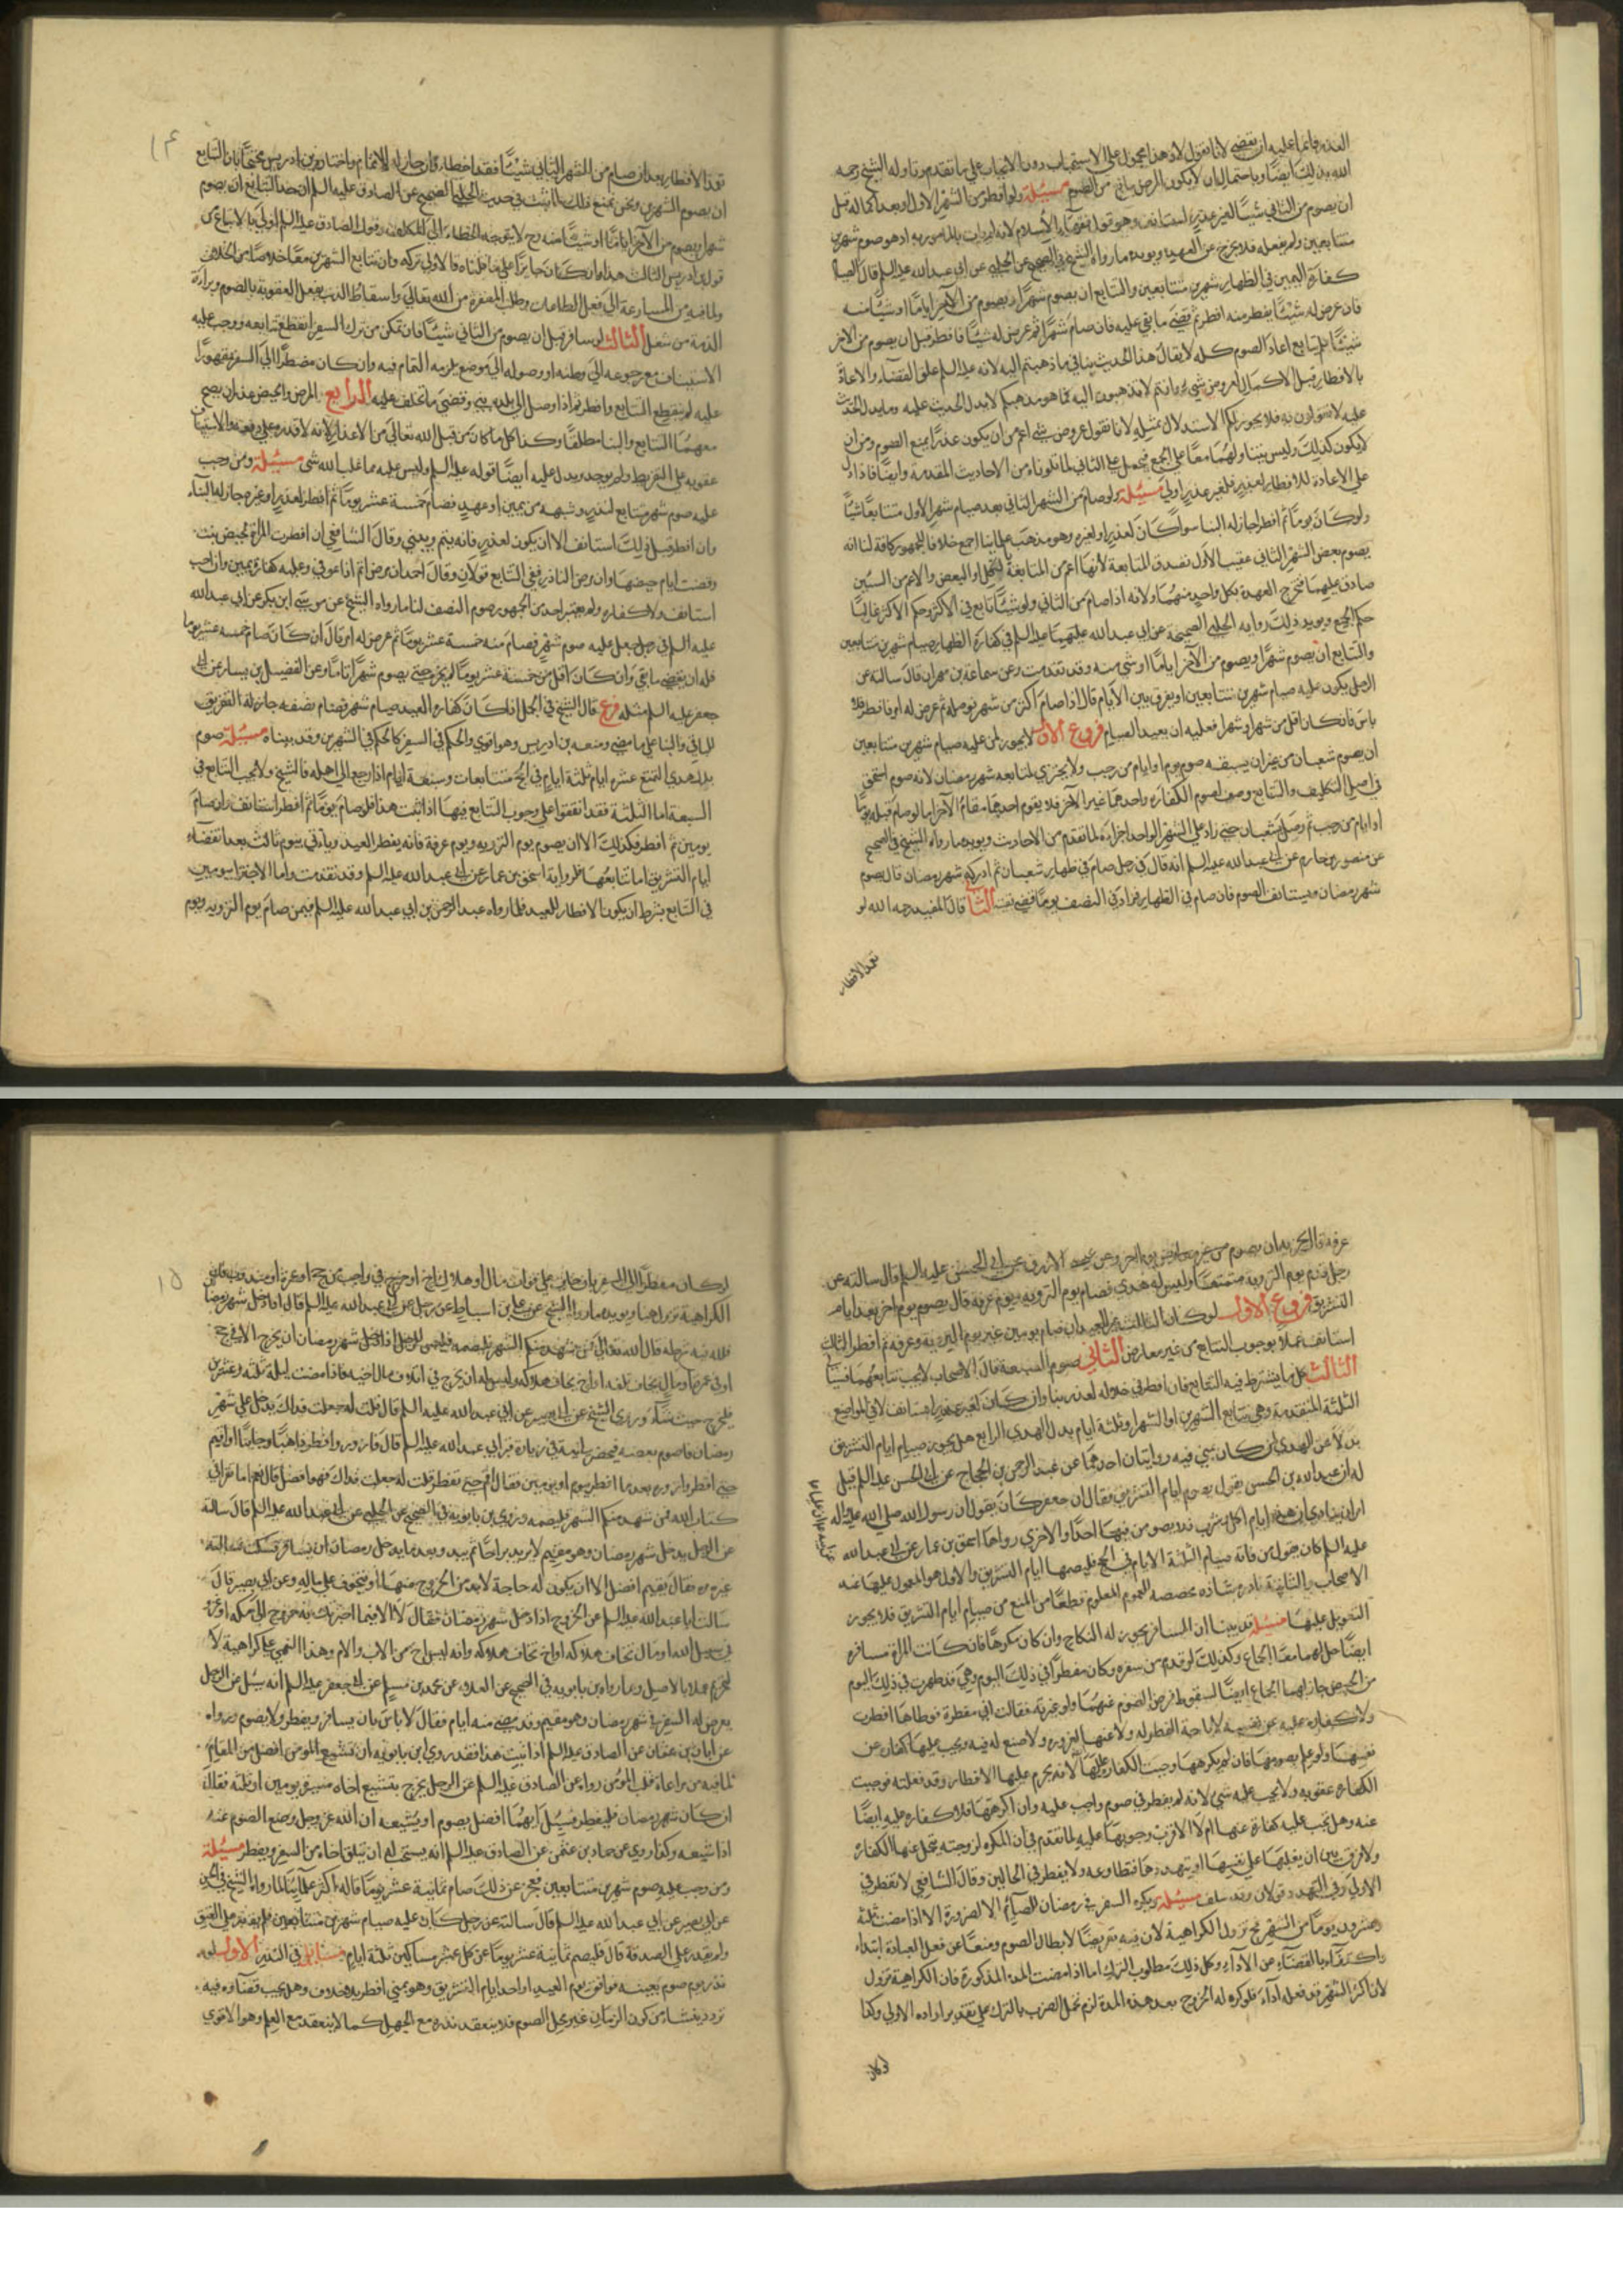 العذر فانما عليه ان يقضي لانا نقول لان هذا محمول على الاستحباب دون الايجاب على ما تقدم وتاوله الشيخ رحمه
الله بذلك ايضًا وباحتمال ان لا يكون المرض مانع من الصوم مسئلة ولو افطر من الشهر الاول او بعد اكماله قبل
ان يصوم من الثاني شيئًا لغير عذر استانف وهو قول فقهاء الاسلام لانه لم يات بالمامور به اذ هو صوم شهرين
متتابعين ولم يفعله فلا يخرج عن العهدة ويويده ما رواه الشيخ في الصحيح عن الحلبي عن ابي عبدالله عليه السلم قال الصيام
كفارة اليمين في الظهار شهرين متتابعين والتتابع ان يصوم شهرًا ويصوم من الآخر ايامًا او شيئًا منه
فان عرض له شيئًا يفطر منه افطر ثم قضى ما بقي عليه فان صام شهرًا ثم عرض له شيئًا فافطر قبل ان يصوم من الآخر
شيئًا فلم يتابع اعاد الصوم كله لا يقال هذا الحديث ينافي ما ذهبتم اليه لانه عليه السلم علق القضاء والاعادة
بالافطار قبل الاكمال لعروض شيء وانتم لا تذهبون اليه فما هو مذهبكم لا يدل الحديث عليه وما يدل الحديث
عليه لا تقولون به فلا يجوز لكم الاستدلال بمثله لانا نقول عروض شي اعم من ان يكون عذرًا يمنع الصوم ومن ان
لا يكون كذلك وليس يتناولهما معًا على الجمع فيحمل على الثاني لما تلوناه من الاحاديث المتقدمة وايضًا فاذا دل
على الاعادة للافطار لعذر فلغير عذر اولى مسئلة ولو صام من الشهر الثاني بعد صيام شهر الاول متتابعًا شيئًا
ولو كان يومًا ثم افطر جاز له البنا سواء كان لعذر او لغيره وهو مذهب علمائنا اجمع خلافا للجمهور كافة لنا انه
يصوم بعض الشهر الثاني عقيب الاول تصدق المتابعة لانها اعم من المتابعة بالكل او البعض والاعم من الشيئين
صادق عليهما فيخرج العهدة بكل واحد منهما ولانه اذا صام من الثاني ولو شيئًا تابع في الاكثر وحكم الاكثر غالبًا
حكم الجميع ويويد ذلك رواية الحلبي الصحيحة عن ابي عبدالله عليهما عليه السلم في كفارة الظهار صيام شهرين متتابعين
والتتابع ان يصوم شهرًا ويصوم من الآخر ايامًا او شي منه وقد تقدمت وعن سماعة بن مهران قال سالته عن
الرجل يكون عليه صيام شهرين متتابعين او يفرق بين الايام قال اذا صام اكثر من شهر فوصله ثم عرض له امر فافطر فلا
باس فان كان اقل من شهر او شهرًا فعليه ان يعيد الصيام فروع الاول لا يجوز لمن عليه صيام شهرين متتابعين
ان يصوم شعبان من غير ان يسبقه صوم يوم او ايام من رجب ولا يجتزي بمتابعه شهر رمضان لانه صوم استحق
في اصل التكليف والتتابع وصف لصوم الكفارة واحدهما غير الآخر فلا يقوم احدهما مقام الآخر اما لو صام قبله يومًا
او ايام من رجب ثم وصل بشعبان حتى زاد على الشهر الواحد اجزاه لما تقدم من الاحاديث ويويده ما رواه الشيخ في الصحيح
عن منصور بن حازم عن ابي عبدالله عليه السلم انه قال في رجل صام في ظهار شعبان ثم ادركه شهر رمضان قال يصوم
شهر رمضان ويستانف الصوم فان صام في الظهار فزاد في النصف يومًا قضى بقيته الثاني قال المفيد رحمه الله لو
تعمد الافطار
١٤
تعمد الافطار بعد ان صام من الشهر الثاني شيئًا فقد اخطاء وان جاز له الاتمام واختاره بن ادريس محتجًا بان التتابع
ان يصوم الشهرين ونحن نمنع ذلك لما ثبت في حديث الحلبي الصحيح عن الصادق عليه السلم ان حد التتابع ان يصوم
شهرًا ويصوم من الآخر ايامًا او شيئًا منه وح لا يتوجه الخطاء الى المكلف وقول الصادق عليه السلم اولى بالاتباع من
قول بن ادريس الثالث هذا وان كان جايزًا على ما قلناه فالاولى تركه وان يتابع الشهرين معًا خلاصًا من الخلاف
ولما فيه من المسارعة الى فعل الطاعات وطلب المغفرة من الله تعالى واسقاط الذنب بفعل العقوبة بالصوم وبراءة
الذمة من شغل الثالث لو سافر قبل ان يصوم من الثاني شيئًا فان تمكن من ترك السفر انقطع تتابعه ووجب عليه
الاستيناف مع رجوعه الى وطنه او وصوله الى موضع يلزمه التمام فيه وان كان مضطرًا الى السفر مقهورًا
عليه لم ينقطع التتابع وافطر ثم اذا وصل الى بلده بنى وقضى ما تخلف عليه الرابع المرض والحيض عذران يصح
معهما التتابع والبنا مطلقًا وكذا كل ما كان من قبل الله تعالى من الاعذار لانه لا قدرة على دفعه والاستيناف
عقوبه على التفريط ولم يوجد ويدل عليه ايضًا قوله عليه السلم وليس عليه مما غلب الله شى مسئلة ومن وجب
عليه صوم شهر متتابع لنذر وشبهه من يمين او عهد فصام خمسة عشر يومًا ثم افطر لعذر او غيره جاز له البناء
وان افطر قبل ذلك استانف الا ان يكون لعذر فانه يتم ويبني وقال الشافعي ان افطرت المراة لحيض بنت
وقضت ايام حيضها وان مرض الناذر ففي التتابع قولان وقال احمد ان مرض اتم اذا عوفي وعليه كفارة يمين وان احب
استانف ولا كفاره ولم يعتبر احد من الجمهور صوم النصف لنا ما رواه الشيخ عن موسى ابن بكر عن ابي عبدالله
عليه السلم في رجل جعل عليه صوم شهر فصام منه خمسة عشر يومًا ثم عرض له امر قال ان كان صام خمسه عشر يوما
فله ان يقضي ما بقي وان كان اقل من خمسة عشر يومًا لم يجز حتى يصوم شهرًا تامًا وعن الفضيل بن يسار عن ابي
جعفر عليه السلم مثله فرع قال الشيخ في الجمل ان كان كفارة العبد صيام شهر فصام نصفه جاز له التفريق
للباقي والبنا على ما مضى ومنعه بن ادريس وهو اقوي والحكم في السفر كالحكم في الشهرين وقد بيناه مسئلة صوم
بدل هدي التمتع عشرة ايام ثلثة ايام في الحج متتابعات وسبعة ايام اذا رجع الى اهله قال الشيخ ولا يجب التتابع في
السبعة اما الثلثة فقد اتفقوا على وجوب التتابع فيها اذا ثبت هذا فلو صام يومًا ثم افطر استانف وان صام
يومين ثم افطر فكذلك الا ان يصوم يوم التروية ويوم عرفة فانه يفطر العيد وياتي بيوم ثالث بعد انقضاء
ايام التشريق اما تتابعها فلرواية اسحق بن عمار عن ابي عبدالله عليه السلم وقد تقدمت واما الاجتزا بيومين
في التتابع بشرط ان يكون الافطار للعيد فلما رواه عبد الرحمن بن ابي عبدالله عليه السلم فيمن صام يوم التروية ويوم
عرفة قال يجزيه ان يصوم الازرق عن ابي الحسن عليه السلم قال سالته عن
رجل قدم يوم التروية متمتعًا وليس له هدي فصام يوم التروية ويوم عرفة قال يصوم يوم اخر بعد ايام
التشريق فروع الاول لو كان الثالث غير العيد بان صام يومين غير يوم التروية وعرفة ثم افطر الثالث
استانف عملًا بوجوب التتابع من غير معارض الثاني صوم السبعة قال الاصحاب لا يجب تتابعهما
الثالث كل ما يشترط فيه التتابع فان افطر في خلاله لعذر بنا وان كان لغير عذر استانف الا في المواضع
الثلثة المتقدمة وهي تتابع الشهرين او الشهر او ثلثة ايام بدل الهدي الرابع هل يجوز صيام ايام التشريق
بدلا عن الهدي لمن كان بمنى فيه روايتان احدهما عن عبد الرحمن بن الحجاج عن ابي الحسن عليه السلم قيل
له ان عبدالله بن الحسن يقول يصوم ايام التشريق فقال ان جعفر كان يقول ان رسول الله صلى الله عليه واله
امر ان ينادي ان هذه ايام اكل وشرب فلا يصومن فيها احدًا والاخري رواها اسحق بن عمار عن ابي عبدالله
عليه السلم كان يقول من فاته صيام الثلثة الايام في الحج فليصمها ايام التشريق والاول هو المعمول عليها عند
الاصحاب والثانية نادرة شاذه مخصصه للعموم المعلوم قطعًا من المنع من صيام ايام التشريق فلا يجوز
التعويل عليها مسئلة قد بينا ان المسافر يجوز له النكاح وان كان مكروهًا فان كانت المراة مسافرة
ايضًا حل لهما معًا الجماع وكذلك لو قدم من سفره وكان مفطرًا في ذلك اليوم وهي قد طهرت في ذلك اليوم
من الحيض جاز لهما الجماع ايضًا لسقوط فرض الصوم عنهما ولو غرته فقالت اني مفطرة فوطاها افطرت
ولا كفارة عليه عن نفسه لاباحة الفطر له ولا عنها لغروره ولا صنع له فيه ويجب عليها كفارة عن
نفسها ولو علم بصومها فان لم يكرهها وجبت الكفارة عليها لانه يحرم عليها الافطار وقد فعلته فوجبت
الكفارة عقوبه ولا يجب عليه شي لانه لم يفطر في صوم واجب عليه وان اكرهها فلا كفاره عليه ايضًا
عنه وهل يجب عليه كفارة عنها ام لا الاقرب وجوبها عليه لما تقدم في ان المكره لزوجته يتحمل عنها الكفارة
ولا فرق بين ان يغلبها على نفسها او يتهددها فتطاوعه ولا يفطر في الحالين وقال الشافعي لا تفطر في
الاولى وفي التهدد قولان وقد سلف مسئلة ويكره السفر في رمضان للصائم الا لضرورة الا اذا مضت ثلثة
وعشرون يومًا من الشهر فح تزول الكراهية لان فيه تعريضًا لابطال الصوم ومنعًا عن فعل العبادة ابتداء
واكتفاء بالقضاء عن الاداء وكل ذلك مطلوب الترك اما اذا مضت المدة المذكورة فان الكراهية تزول
لان اكثر الشهر قد فعله اداء فلو كره له الخروج بعد هذه المدة لزم تحمل الضرر بالترك على تقدير ارادة الاولى وكذا
وكذا
١٥
لو كان مضطرًا الى السفر بان خاف على فوات مال او هلاك اخ او خرج في واجب من حج او عمرة او مندوب
الكراهية تزول هنا ويويده ما رواه الشيخ عن علي بن اسباط عن رجل عن ابي عبدالله عليه السلم قال اذا دخل شهر رمضان
فلله فيه شرط قال الله تعالى فمن شهد منكم الشهر فليصمه فليس للرجل اذا دخل شهر رمضان ان يخرج الا في حج
او في عمرة او مال يخاف تلفه او اخ يخاف هلاكه وليس له ان يخرج في اتلاف مال اخيه فاذا مضت ليلة ثلثة وعشرين
فليخرج حيث شاء وروى الشيخ عن ابي بصير عن ابي عبدالله عليه السلم قال قلت له جعلت فداك يدخل علي شهر
رمضان فاصوم بعضه فيحضرني نية في زيارة قبر ابي عبدالله عليه السلم قال فازوره وافطر ذاهبًا وجائيًا او اقيم
حتى افطر وازوره بعد ما افطر بيوم او يومين فقال اقم حتى تفطر قلت له جعلت فداك فهو افضل قال نعم اما تقرا في
كتاب الله فمن شهد منكم الشهر فليصمه وروى بن بابويه في الصحيح عن الحلبي عن ابي عبدالله عليه السلم قال سالته
عن الرجل يدخل شهر رمضان وهو مقيم لا يريد براحًا ثم يبدو بعد ما يدخل رمضان ان يسافر فسكت فسالته
غير مره فقال يقيم افضل الا ان يكون له حاجة لا بد من الخروج منها او يتخوف على ماله وعن ابي بصير قال
سالت ابا عبدالله عليه السلم عن الخروج اذا دخل شهر رمضان فقال لا الا فيما اخبرك به خروج الى مكة او غزو
في سبيل الله او مال تخاف هلاكه او اخ تخاف هلاكه وانه ليس اخ من الاب والام وهذا النهي على كراهية لا
تحريم عملًا بالاصل وبما رواه بن بابويه في الصحيح عن العلاء عن محمد بن مسلم عن ابي جعفر عليه السلم انه سئل عن الرجل
يعرض له السفر في شهر رمضان وهو مقيم وقد مضى منه ايام فقال لا باس بان يسافر ويفطر ولا يصوم ورواه
عن ابان بن عثمان عن الصادق عليه السلم اذا ثبت هذا فقد روى ابن بابويه ان تشييع المومن افضل من المقام
لما فيه من مراعاة قلب المؤمن رواه عن الصادق عليه السلم عن الرجل يخرج يشيع اخاه مسيرة يومين او ثلثة فقال
ان كان شهر رمضان فليفطر فسئل ايهما افضل يصوم او يشيعه ان الله عز وجل وضع الصوم عنه
اذا شيعه وكذا روى عن حماد بن عثمن عن الصادق عليه السلم انه يستحب له ان يتلقى اخاه من السفر ويفطر مسئلة
ومن وجب عليه صوم شهرين متتابعين فعجز عن ذلك صام ثمانية عشر يومًا قاله اكثر علمائنا لما رواه الشيخ في الحسن
عن ابي بصير عن ابي عبدالله عليه السلم قال سالته عن رجل كان عليه صيام شهرين متتابعين فلم يقدر على العتق
ولم يقدر على الصدقة قال فليصم ثمانية عشر يومًا عن كل عشر مساكين ثلثة ايام مسائل في النذر الاولى لو
نذر يوم صوم بعينه فوافق يوم العيد او احد ايام التشريق وهو بمنى افطر بلا خلاف وهل يجب قضاءه فيه
تردد ينشاء من كون الزمان غير محل الصوم فلا ينعقد نذره مع الجهل كما لا ينعقد مع العلم وهو الاقوي